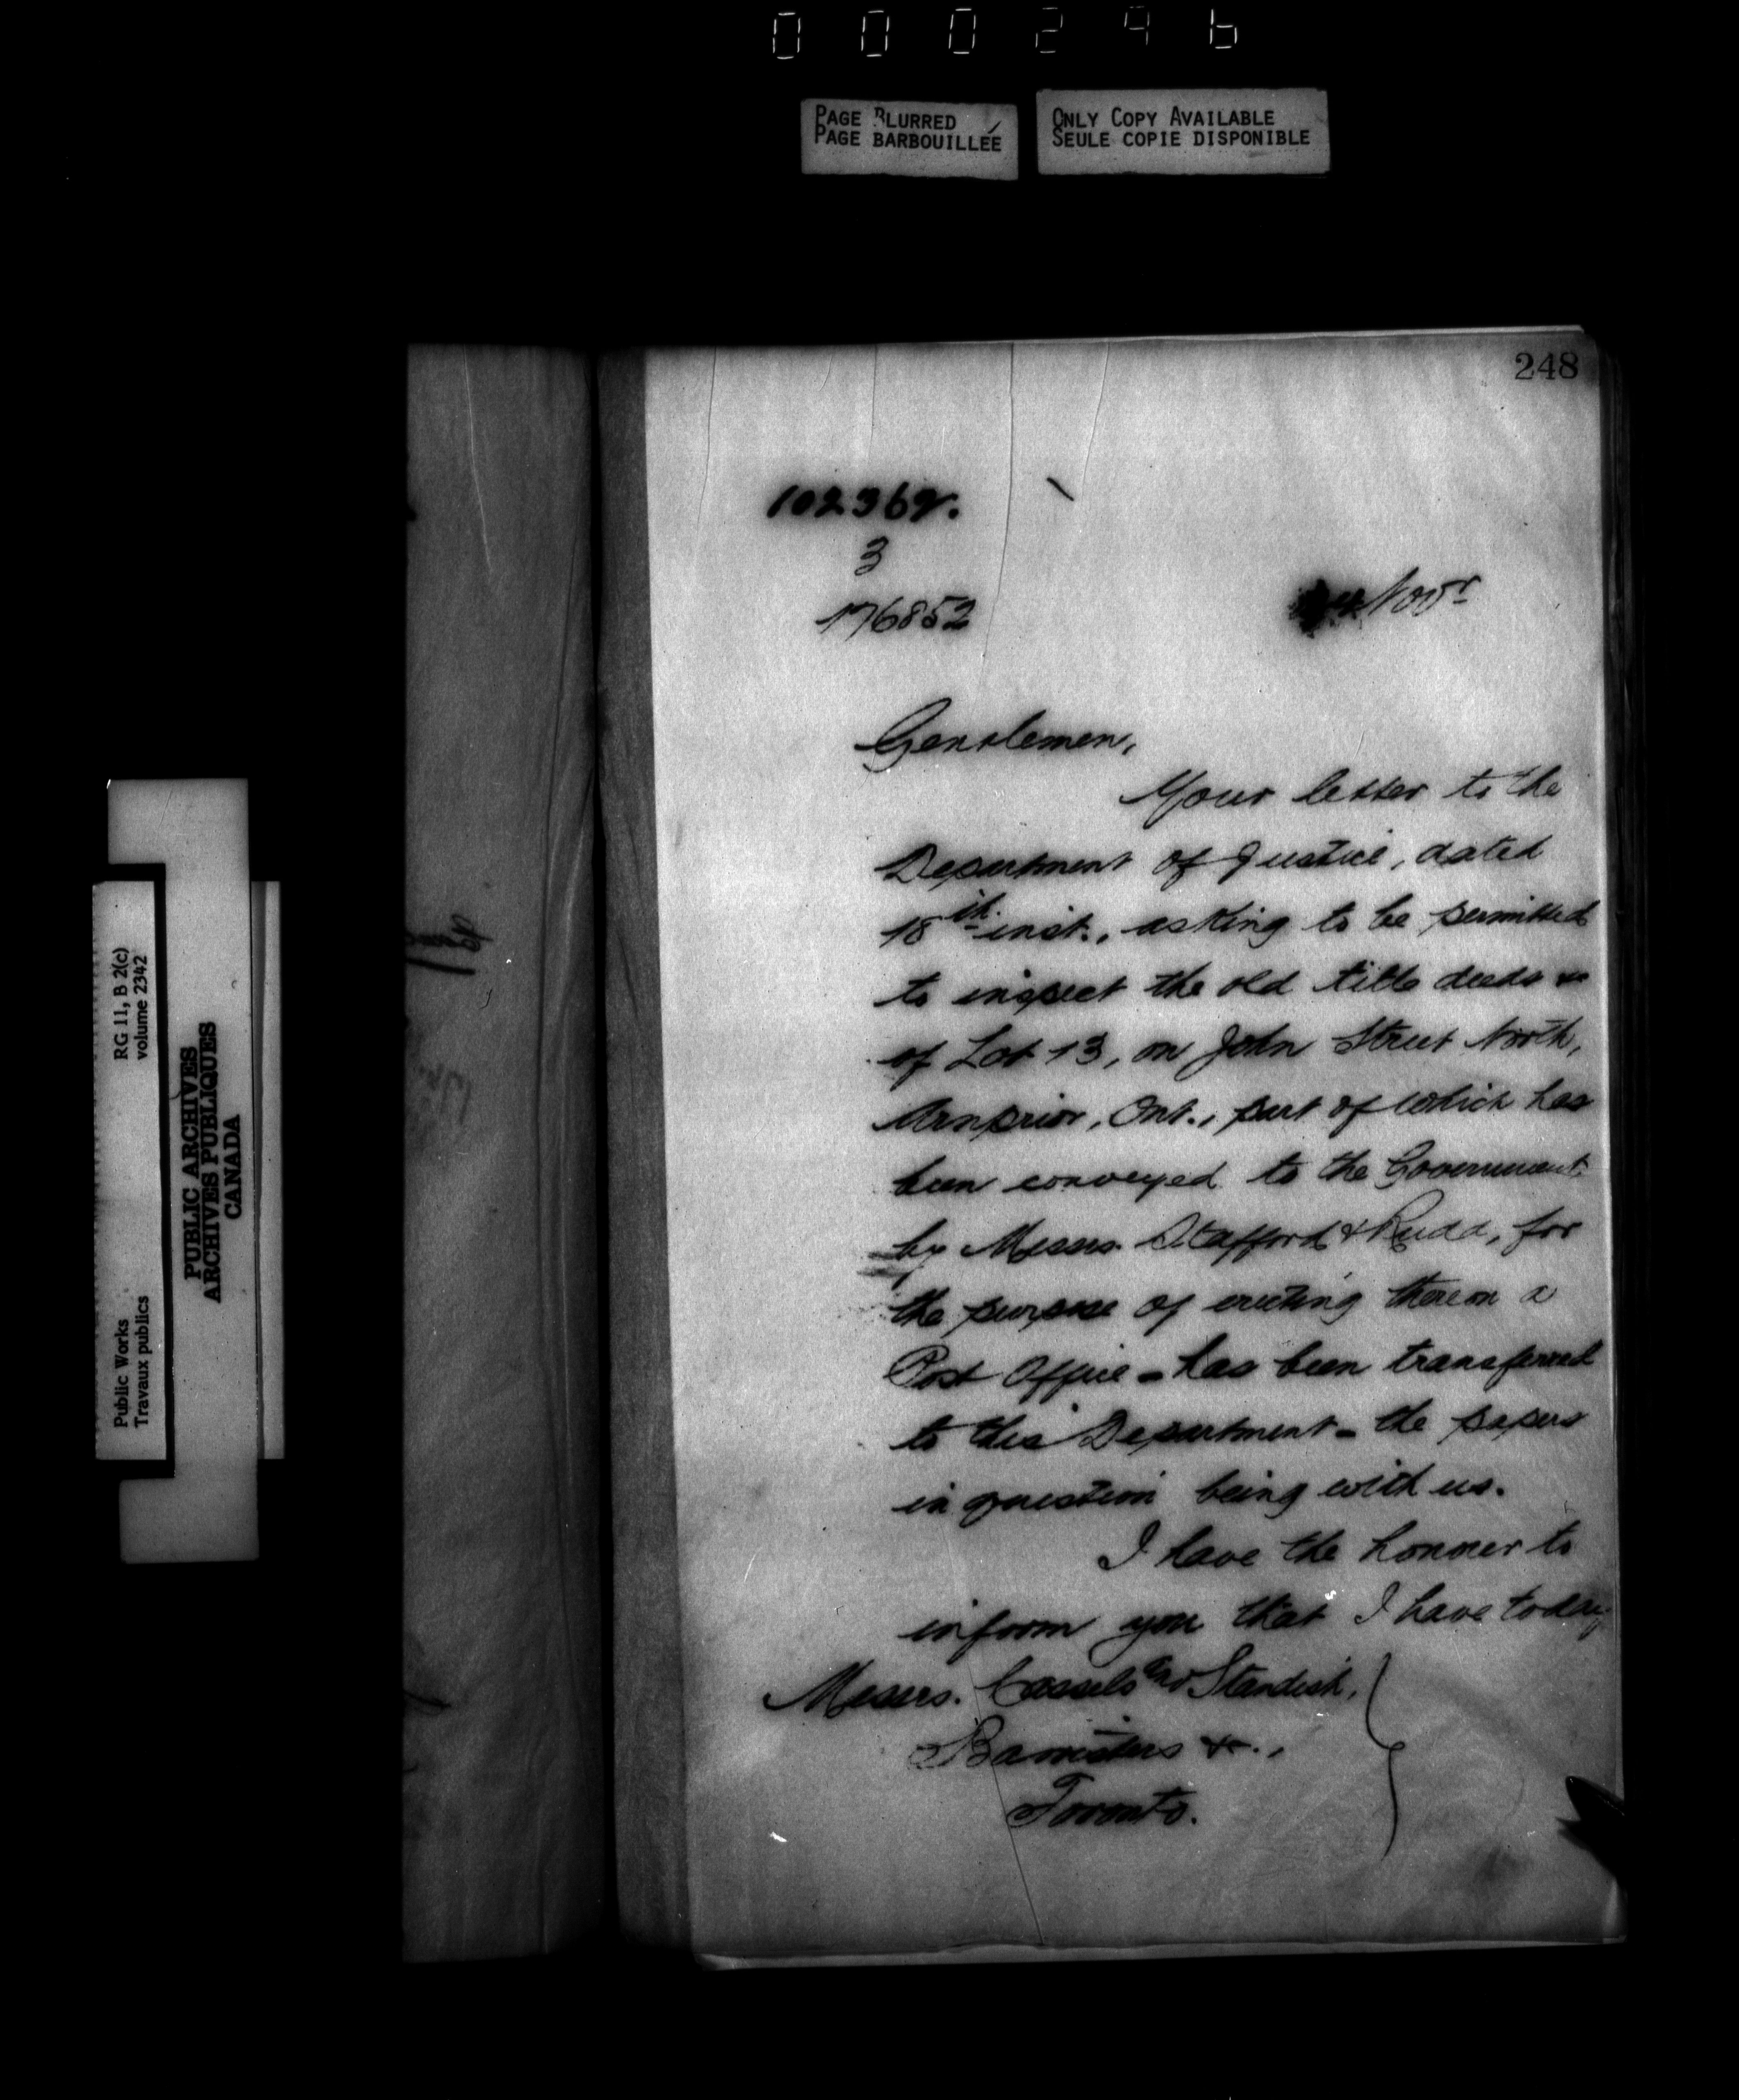 000246
PAGE BLURRED
PAGE BARBOUILLÉE
ONLY COPY AVAILABLE
SEULE COPIE DISPONIBLE
248
102369.
3
176852
Novr
Gentlemen,
Your letter to the
Department of Justice, dated
18th inst., asking to be permitted
to inspect the old title deeds &c
of Lot 13, on John Street North,
Arnprior, Ont., part of which has
been conveyed to the Government
by Messrs. Stafford & Rudd, for
the purpose of erecting thereon a
Post Office - has been transferred
to this Department - the papers
in question being with us.
I have the honour to
inform you that I have today
Messrs. Cassels and Standish,
Barristers &c.,
Toronto.
Public Works
Travaux publics
RG 11, B 2(c)
volume 2342
PUBLIC ARCHIVES
ARCHIVES PUBLIQUES
CANADA